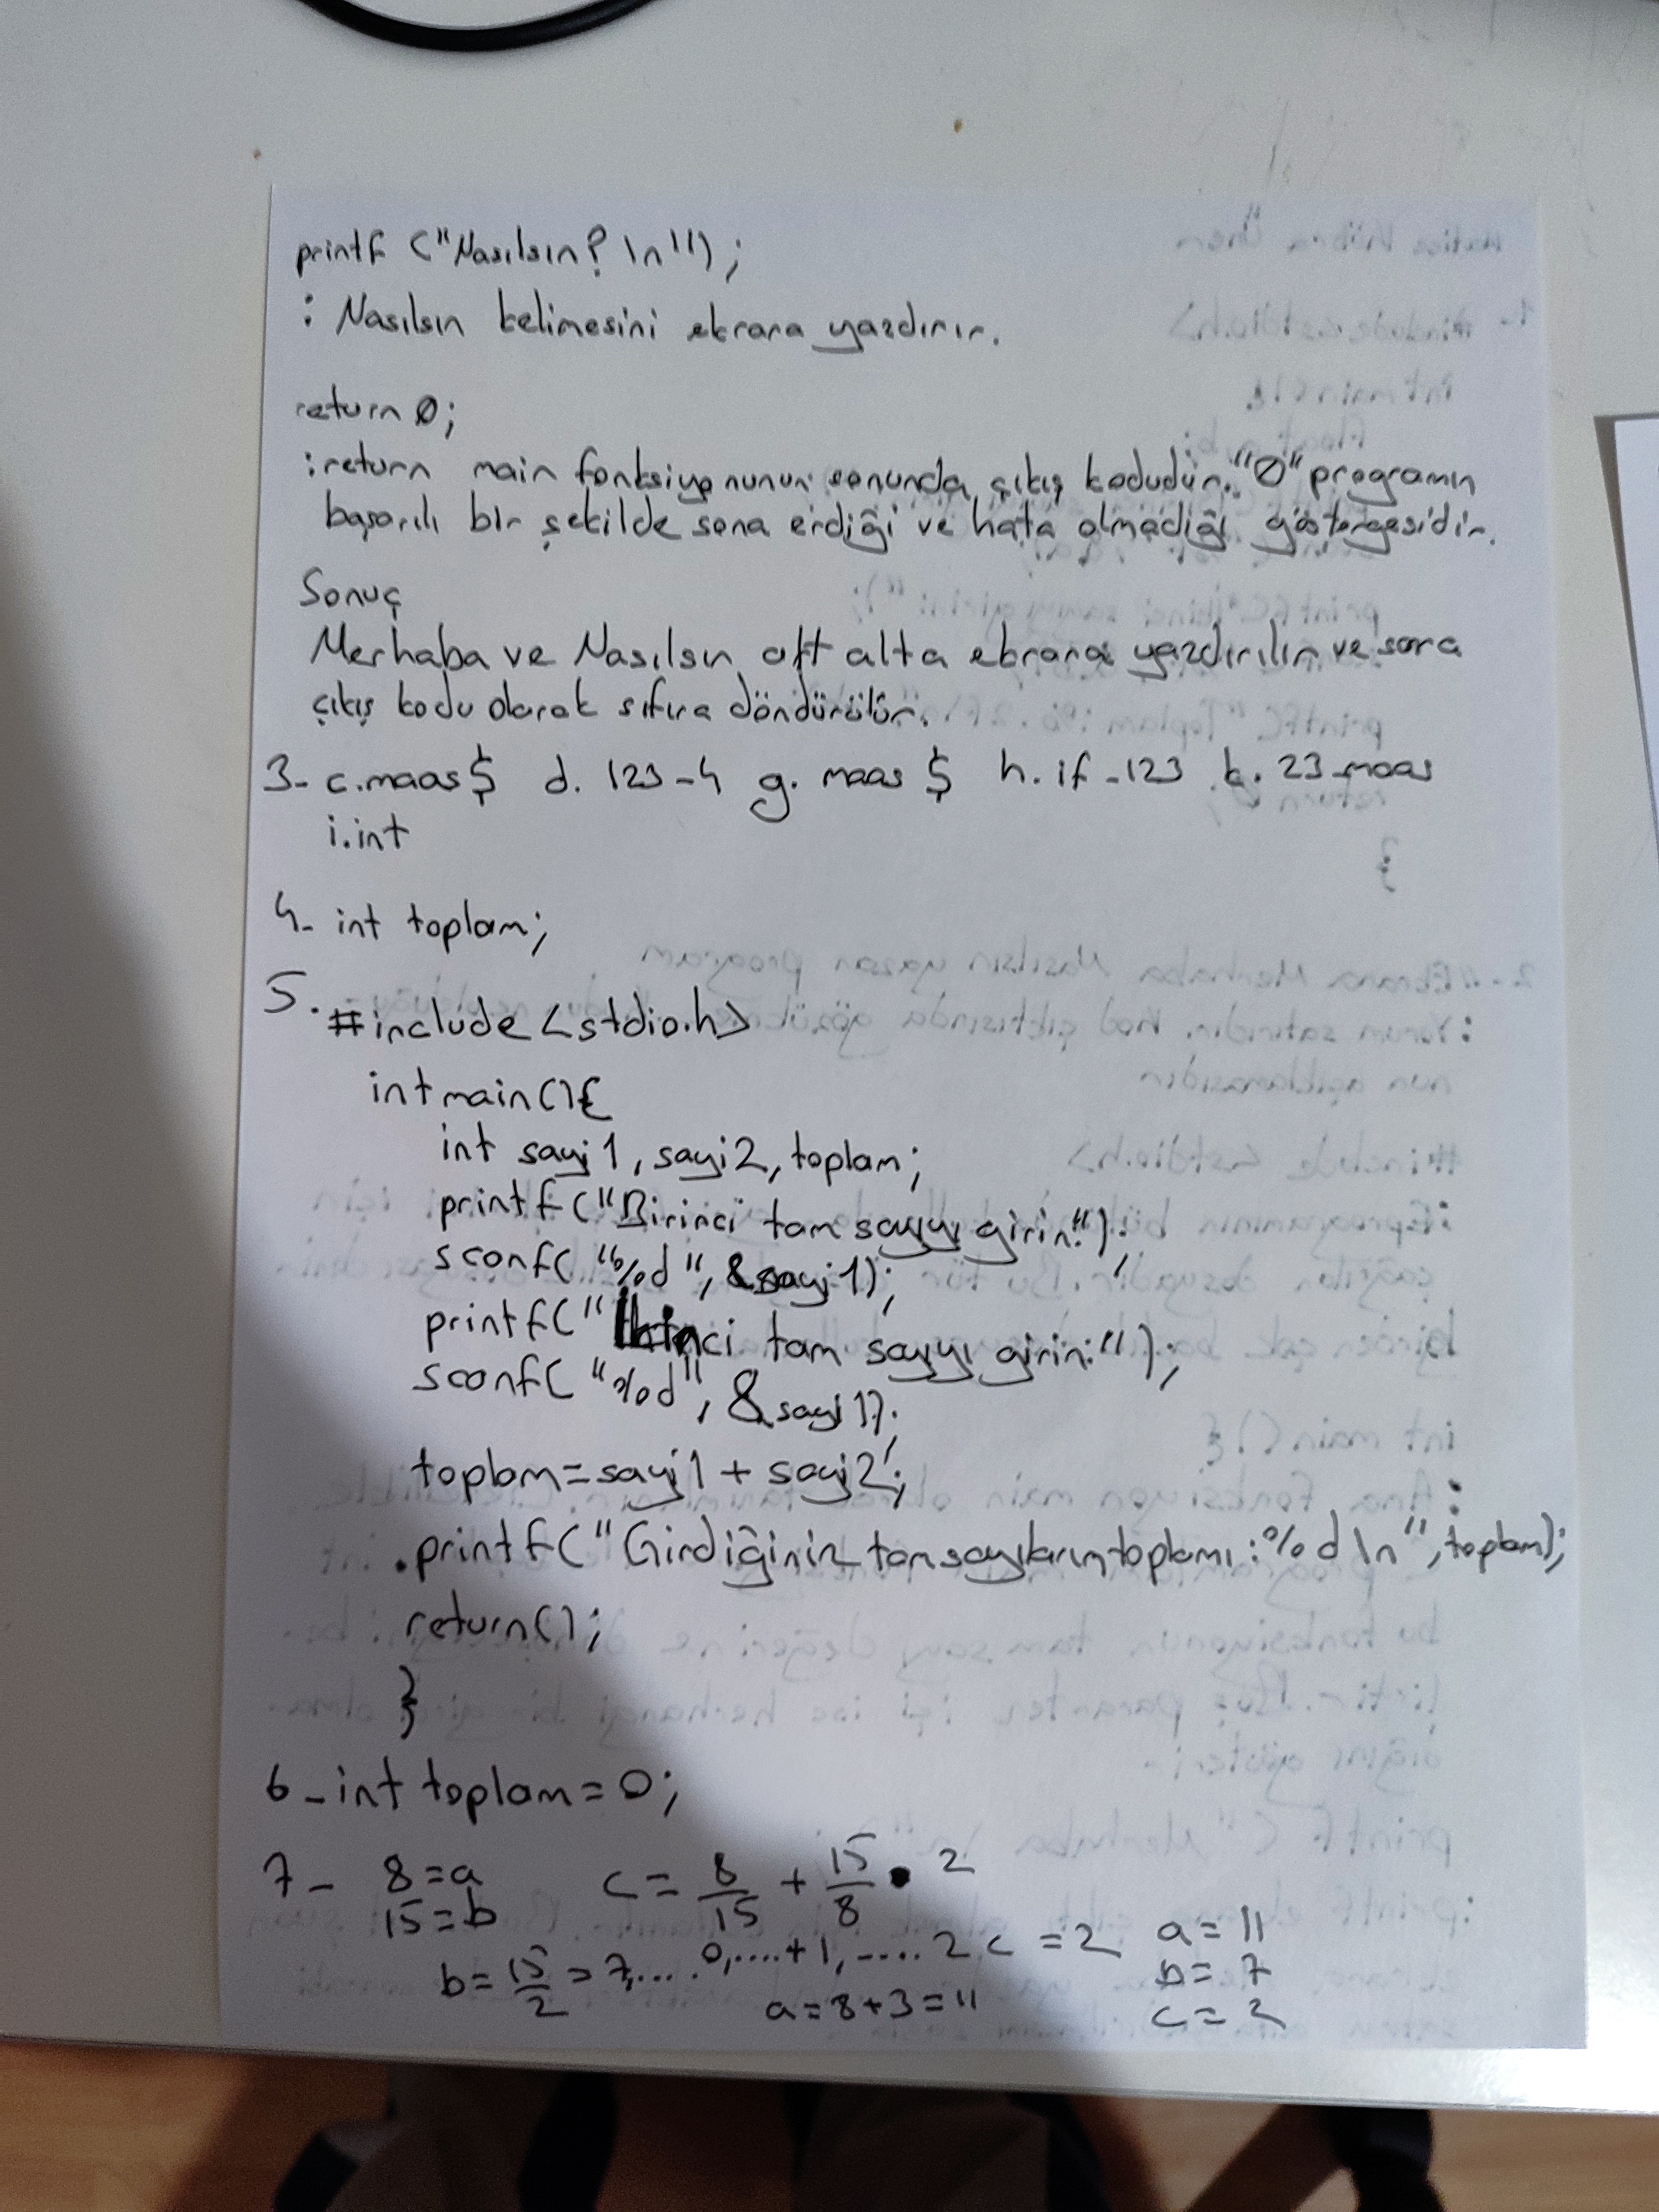 printf ("Nasılsın? \n");
: Nasılsın kelimesini ekrara yazdırır.
return 0;
:return main fonksiyonunun sonunda çıkış kodudur. "0" programın
başarılı bir şekilde sona erdiği ve hata olmadığı göstergesidir.
Sonuç
Merhaba ve Nasılsın alt alta ekrara yazdırılır ve sora
çıkış kodu olarak sıfıra döndürülür.
3- c.maas$ d. 123-4 g. maas $ h. if-123 k. 23-maas
i.int
4- int toplam;
5. #include <stdio.h>
int main(){
int sayi1, sayi2, toplam;
printf("Birinci tam sayıyı girin:");
sconf("%d", &sayi1);
printf("İkinci tam sayıyı girin:");
sconf("%d", &sayi1);
toplam=sayi1 + sayi2;
printf("Girdiğiniz tam sayıların toplamı:%d\n", toplam);
return();
}
6- int toplam=0;
7- 8=a c= 8/15 + 15/8 • 2
15=b
b= 15/2 = 7,.... 0,....+1,.... 2 c =2 a=11
b= 7
a=8+3=11 c=2